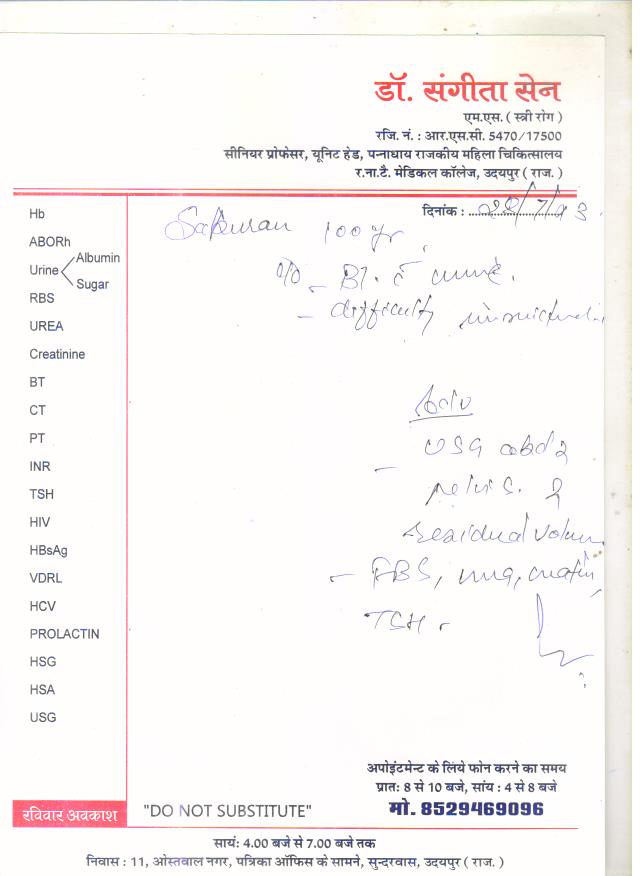 डॉ. संगीता सेन
एम.एस. ( स्त्री रोग )
रजि. नं. : आर.एस.सी. 5470/17500
सीनियर प्रोफेसर, यूनिट हेड, पन्नाधाय राजकीय महिला चिकित्सालय
र.ना.टै. मेडिकल कॉलेज, उदयपुर ( राज. )
दिनांक :
Hb
ABORh
Urine Albumin
Sugar
RBS
UREA
Creatinine
BT
CT
PT
INR
TSH
HIV
HBsAg
VDRL
HCV
PROLACTIN
HSG
HSA
USG
100 yr
difficulty
Adv
USG abd &
pelvis.
residual volum
TSH
अपोइंटमेन्ट के लिये फोन करने का समय
प्रात: 8 से 10 बजे, सांय : 4 से 8 बजे
मो. 8529469096
रविवार अवकाश
"DO NOT SUBSTITUTE"
सायं: 4.00 बजे से 7.00 बजे तक
निवास : 11, ओस्तवाल नगर, पत्रिका ऑफिस के सामने, सुन्दरवास, उदयपुर ( राज. )